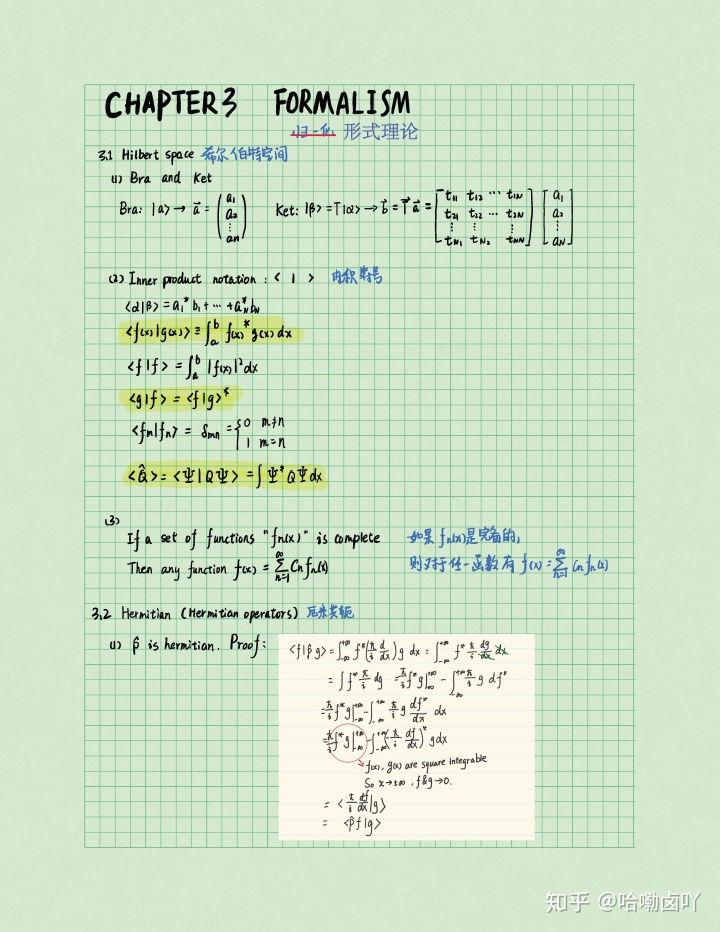 CHAPTER 3 FORMALISM
归一化 形式理论
3.1 Hilbert space 希尔伯特空间
(1) Bra and Ket
Bra: |a> → \vec{a} = \begin{pmatrix} a_1 \\ a_2 \\ \vdots \\ a_N \end{pmatrix} Ket: |β> = T|α> → \vec{b} = \vec{T} \vec{a} = \begin{bmatrix} t_{11} & t_{12} & \cdots & t_{1N} \\ t_{21} & t_{22} & \cdots & t_{2N} \\ \vdots & \vdots & & \vdots \\ t_{N1} & t_{N2} & & t_{NN} \end{bmatrix} \begin{bmatrix} a_1 \\ a_2 \\ \vdots \\ a_N \end{bmatrix}
(2) Inner product notation : < | > 内积符号
<α|β> = a_1^* b_1 + ⋯ + a_N^* b_N
<f(x)|g(x)> ≡ ∫_a^b f(x)^* g(x) dx
<f|f> = ∫_a^b |f(x)|^2 dx
<g|f> = <f|g>^*
<f_m|f_n> = δ_{mn} = { 0 m≠n
1 m=n
<\hat{Q}> = <Ψ|QΨ> = ∫ Ψ^* Q Ψ dx
(3)
If a set of functions "f_n(x)" is complete 如果 f_n(x) 是完备的,
Then any function f(x) = \sum_{n=1}^{∞} C_n f_n(x) 则对于任一函数有 f(x) = \sum_{n=1}^{∞} C_n f_n(x)
3.2 Hermitian (Hermitian operators) 厄米共轭
(1) \hat{p} is hermitian. Proof:
<f|\hat{p} g> = ∫_{-∞}^{+∞} f^* (\frac{ħ}{i} \frac{d}{dx}) g dx = ∫_{-∞}^{+∞} f^* \frac{ħ}{i} \frac{dg}{dx} dx
= ∫ f^* \frac{ħ}{i} dg = \frac{ħ}{i} f^* g|_{-∞}^{+∞} - ∫_{-∞}^{+∞} \frac{ħ}{i} g df^*
= \frac{ħ}{i} f^* g|_{-∞}^{+∞} - ∫_{-∞}^{+∞} \frac{ħ}{i} g \frac{df^*}{dx} dx
= \frac{ħ}{i} f^* g|_{-∞}^{+∞} - ∫_{-∞}^{+∞} (-\frac{ħ}{i} \frac{df}{dx})^* g dx
f(x), g(x) are square integrable
So x→±∞, f & g → 0.
= <\frac{ħ}{i} \frac{df}{dx}|g>
= <\hat{p} f|g>
知乎 @哈嘞卤吖